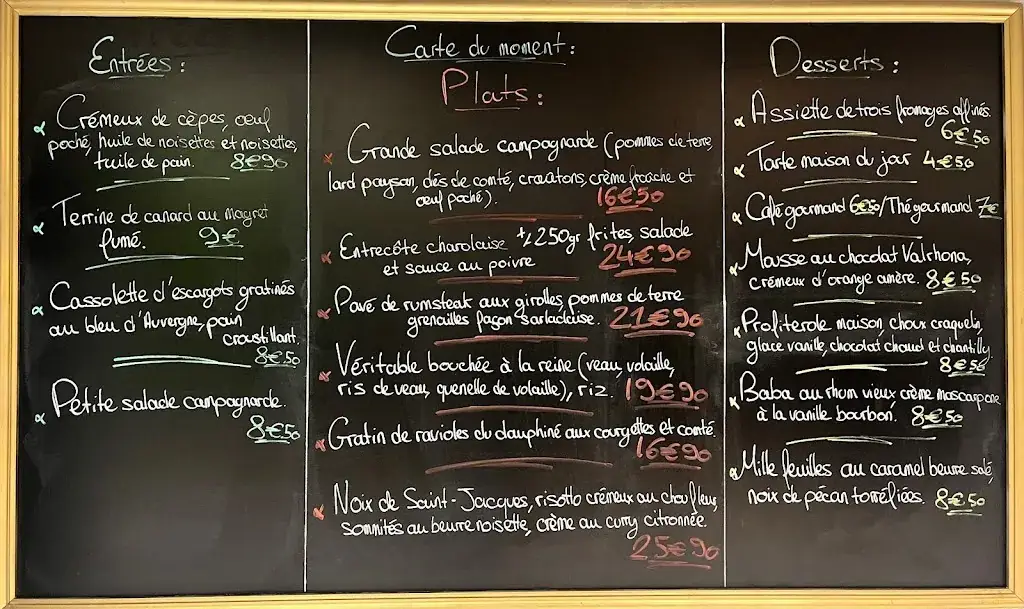 Entrées :
Crémeux de cèpes, œuf
poché, huile de noisettes et noisettes,
tuile de pain. 8€90
Terrine de canard au magret
fumé. 9€
Cassolette d'escargots gratinés
au bleu d'Auvergne, pain
croustillant.
8€50
Petite salade campagnarde.
8€50
Carte du moment :
Plats :
Grande salade campagnarde (pommes de terre,
lard paysan, dés de comté, croutons, crème fraîche et
œuf poché). 16€50
Entrecôte charolaise +/- 250gr frites, salade
et sauce au poivre 24€90
Pavé de rumsteak aux girolles, pommes de terre
grenailles façon sarladaise. 21€90
Véritable bouchée à la reine (veau, volaille,
ris de veau, quenelle de volaille), riz. 19€90
Gratin de ravioles du dauphiné aux courgettes et comté.
16€90
Noix de Saint-Jacques, risotto crémeux au chou fleur,
sommités au beurre noisette, crème au curry citronnée.
25€90
Desserts :
Assiette de trois fromages affinés.
6€50
Tarte maison du jour 4€50
Café gourmand 6€50/Thé gourmand 7€
Mousse au chocolat Valrhona,
crémeux d'orange amère. 8€50
Profiterole maison, choux craquelin,
glace vanille, chocolat chaud et chantilly.
8€50
Baba au rhum vieux crème mascarpone
à la vanille bourbon. 8€50
Mille feuilles au caramel beurre salé,
noix de pécan torréfiées. 8€50